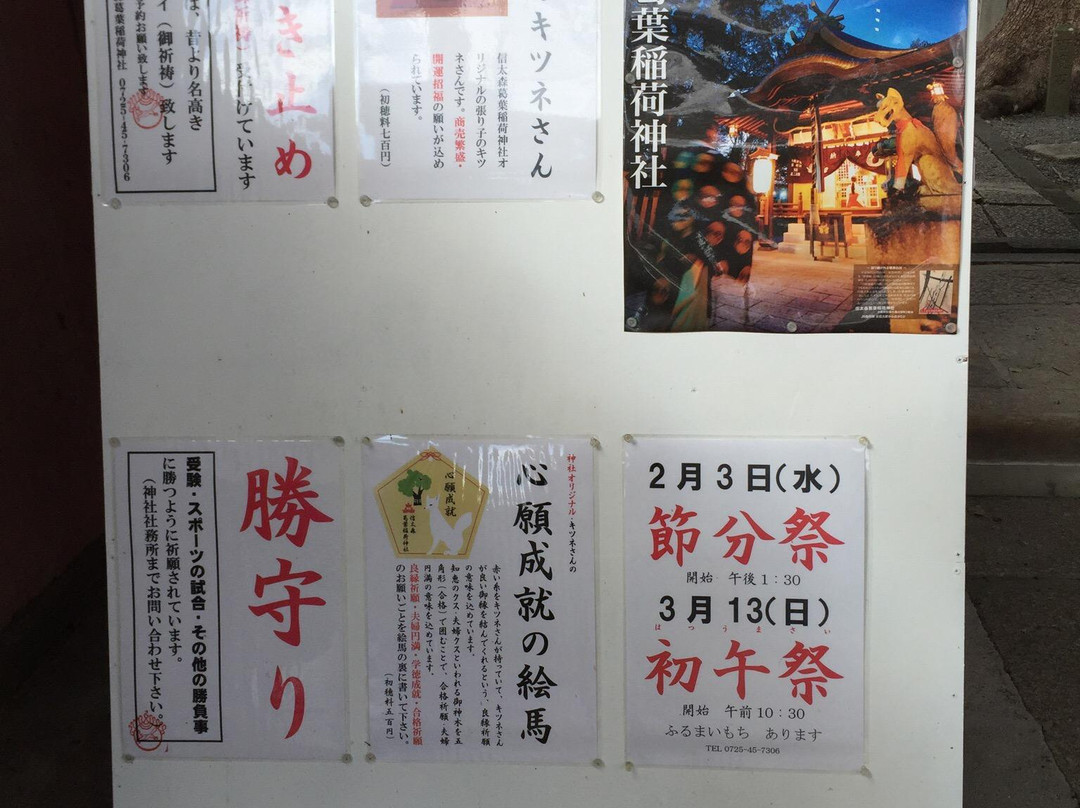 き止め
受付けています
は、昔より名高き
イ（御祈祷）致します
予約お願い致します
葛葉稲荷神社 0725-45-7306
キツネさん
信太森葛葉稲荷神社オ
リジナルの張り子のキツ
ネさんです。商売繁盛・
開運招福の願いが込め
られています。
（初穂料七百円）
葉稲荷神社
勝守り
受験・スポーツの試合・その他の勝負事
に勝つように祈願されています。
（神社社務所までお問い合わせ下さい。）
神社オリジナル・キツネさんの
心願成就の絵馬
心願成就
信太森
葛葉稲荷神社
赤い糸をキツネさんが持っていて、キツネさん
が良い御縁を結んでくれるという、良縁祈願
の意味を込めています。
知恵のクス・夫婦クスといわれる御神木を五
角形（合格）で囲むことで、合格祈願・夫婦
円満の意味を込めています。
良縁祈願・夫婦円満・学徳成就・合格祈願
のお願いごとを絵馬の裏に書いて下さい。
（初穂料五百円）
2月3日（水）
節分祭
開始 午後1：30
3月13（日）
はつうまさい
初午祭
開始 午前10：30
ふるまいもち あります
TEL 0725-45-7306